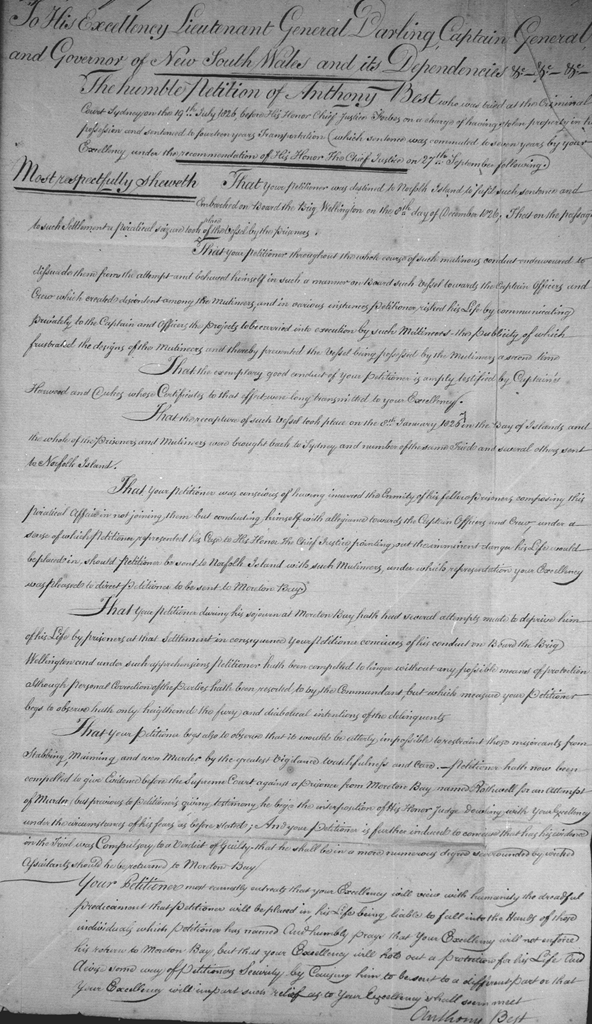 To His Excellency Lieutenant General Darling, Captain General,
and Governor of New South Wales and its Dependencies &c &c &c
The humble Petition of Anthony Best who was tried at the Criminal
Court Sydney on the 19th July 1826 before His Honor Chief Justice Forbes on a charge of having stolen property in his
possession and sentenced to fourteen years Transportation (which sentence was commuted to seven years by your
Excellency, under the recommendation of His Honor The Chief Justice on 27th September following)
Most respectfully sheweth That Your Petitioner was destined to Norfolk Island to such sentence and
embarked on Board the Brig Wellington on the day of December 1826, That on the passage
to such Settlement a piratical seizure took place of the Vessel by the Prisoners.
That your petitioner throughout the whole course of such mutinous conduct endeavoured to
dissuade them from the attempt and behaved himself in such a manner on Board such Vessel towards the Captain Officers and
Crew which created among the Mutineers, and in various instances Petitioner risked his Life by communicating
privately to the Captain and Officers the projects to be carried into execution by such Mutineers the publicity of which
frustrated the designs of the Mutineers and thereby prevented the Vessel being possessed by the Mutineers a second time
That the exemplary good conduct of your Petitioner is amply testified by Captains
Harwood and whose Certificates to that effect were long transmitted to your Excellency.
That the recapture of such Vessel took place on the January in the Bay of Islands and
the whole of the Prisoners and Mutineers were brought back to Sydney and number of the same Tried and several others sent
to Norfolk Island.
That Your Petitioner was conscious of having incurred the Enmity of his fellow prisoners composing this
piratical Affair in not joining them but conducting himself with allegiance towards the Captain Officers and Crew, under a
sense of which Petitioner represented his Case to His Honor The Chief Justice pointing out the imminent danger his Life would
be placed in, should Petitioner be sent to Norfolk Island with such Mutineers, under which representation your Excellency
was pleased to direct Petitioner to be sent to Moreton Bay
That Your Petitioner during his sojourn at Moreton Bay hath had several attempts made to deprive him
of his Life by prisoners at that Settlement in consequence Your Petitioner conceives of his conduct on Board the Brig
Wellington and under such apprehensions Petitioner hath been compelled to linger without any possible means of protection
although personal Correction of the parties hath been resorted to by the Commandant, but which measure your petitioner
begs to observe hath only heightened the fury and diabolical intentions of the delinquents
That Your petitioner begs also to observe that it would be utterly impossible to restraint those miscreants from
Stabbing, Maiming, and even Murder by the greatest Vigilance watchfulness and Care.—Petitioner hath now been
compelled to give Evidence before the Supreme Court against a Prisoner from Moreton Bay named for an Attempt
of Murder, but previous to petitioner giving testimony he begs the interposition of His Honor Judge Dowling with Your Excellency
under the circumstances of his fears as before stated; And your petitioner is further induced to conceive that his
in the Trial was Compulsory to a Verdict of Guilty that he shall be in a more numerous degree surrounded by wicked
Assailants should he be returned to Moreton Bay
Your Petitioner most earnestly entreats that Your Excellency will view with humanity the dreadful
predicament that Petitioner will be placed in his Life being liable to fall into the Hands of those
individuals which petitioner has named And humbly prays that Your Excellency will not enforce
his return to Moreton Bay, but that your Excellency will hold out a protection for his Life And
Advise some way of Petitioners Security by Causing him to be sent to a different part or that
Your Excellency will impart such relief as to Your Excellency shall seem meet
Anthony Best